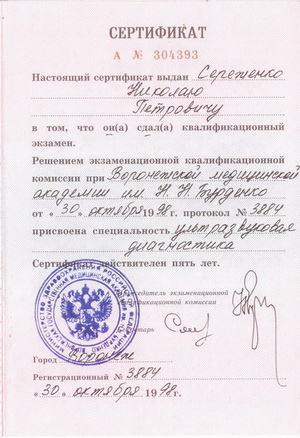 СЕРТИФИКАТ
А № 304393
Настоящий сертификат выдан Сереженко
Николаю
Петровичу
в том, что он(а) сдал(а) квалификационный
экзамен.
Решением экзаменационной квалификационной
комиссии при Воронежской медицинской
академии им. Н. Н. Бурденко
от «30» октября 1998г. протокол № 3884
присвоена специальность ультразвуковая
диагностика
Сертификат действителен пять лет.
Председатель экзаменационной
квалификационной комиссии
Город Воронеж
Регистрационный № 3884
«30» октября 1998г.